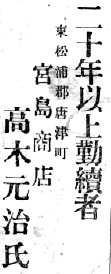 二十年以上勤續者
東松浦郡唐津町
宮島商店
高木元治氏